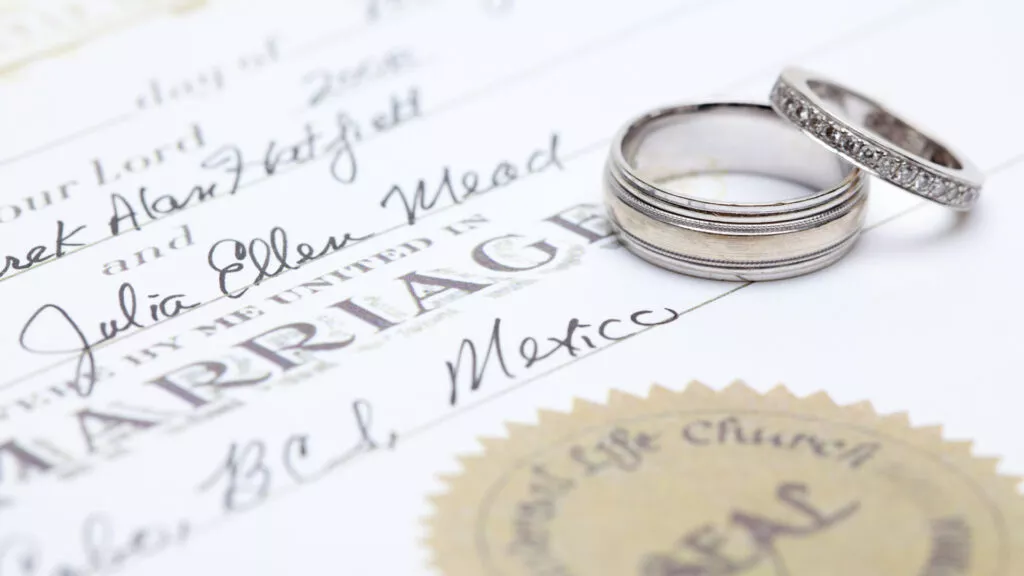 day of
our Lord 2008
rek Alan Hatfield
and
Julia Ellen Mead
WERE BY ME UNITED IN
MARRIAGE
Mexico
Cabo, BCS,
Life Church
SEAL